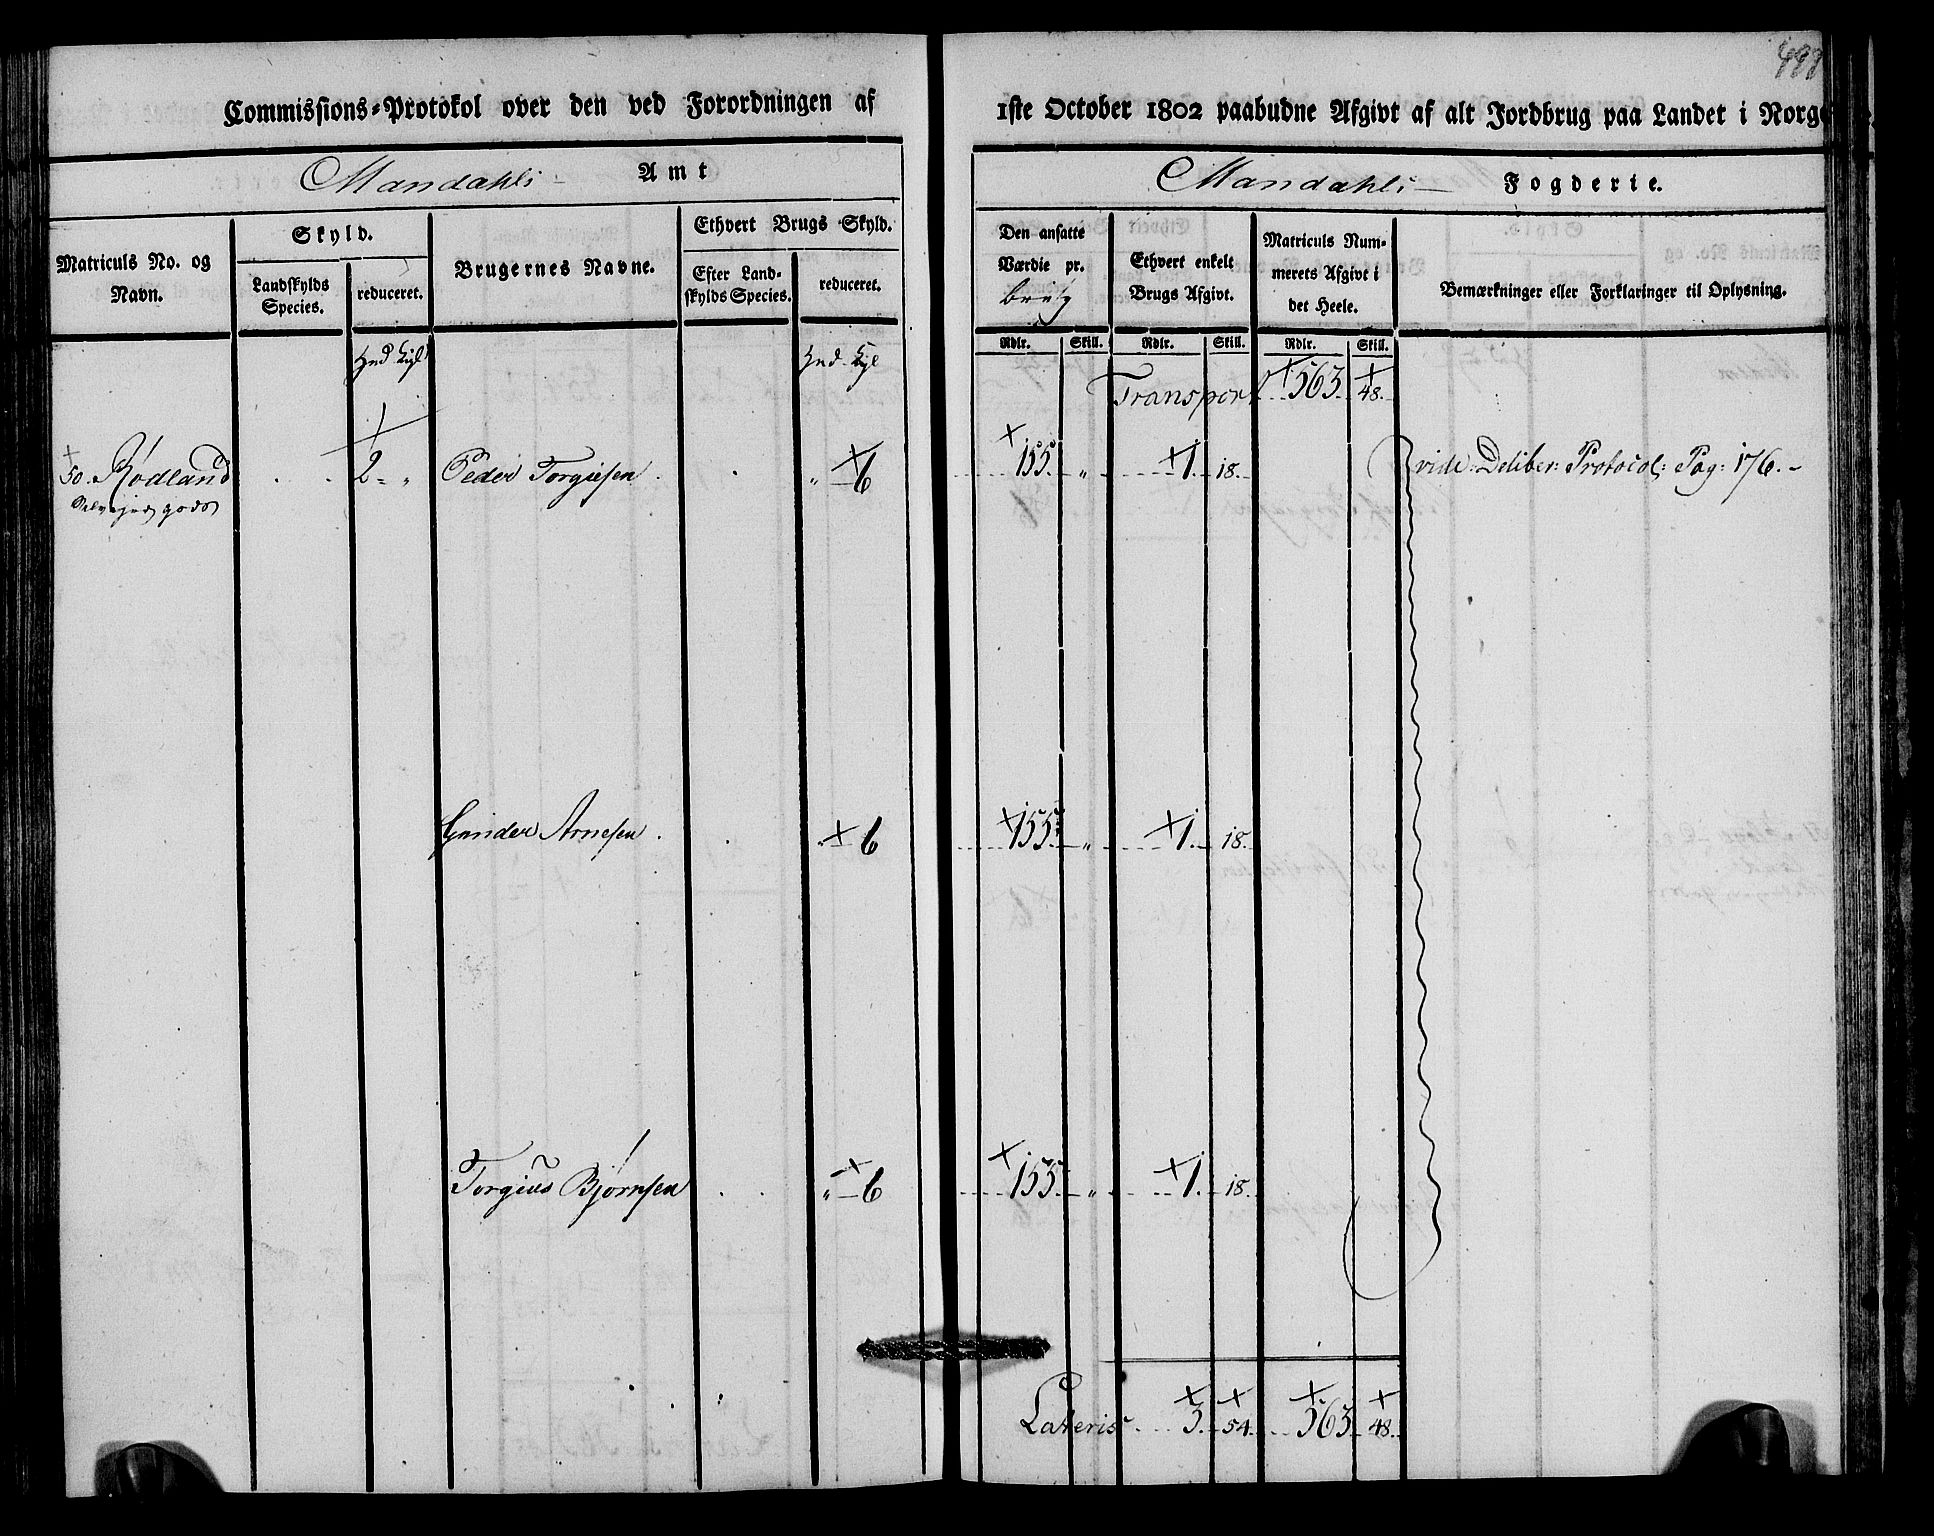 498
Commissions-Protokol over den ved Forordningen af 1ste October 1802 paabudne Afgivt af alt Jordbrug paa Landet i Norge
Mandahls Amt
Mandahls Fogderie.
Matriculs No. og Navn.
Skyld.
Landskylds Species.
reduceret.
Brugernes Navne.
Ethvert Brugs Skyld.
Efter Landskylds Species.
reduceret.
Den ansatte Værdie pr. brug
Ethvert enkelt Brugs Afgivt.
Matriculs Nummerets Afgivt i det Heele.
Bemærkninger eller Forklaringer til Oplysning.
Rdlr. Skill. Rdlr. Skill. Rdlr. Skill.
Transport 563. 48.
50. Rødland 2 " Peder Torgiesen " 6 155 " 1. 18. vide: Deliber: Protocol: Pag: 176.
Selvejer gods
Gunder Arnesen " 6 155 " 1. 18.
Torgius Bjørnsen " 6 155 " 1. 18.
Lateris 3. 54. 563. 48.